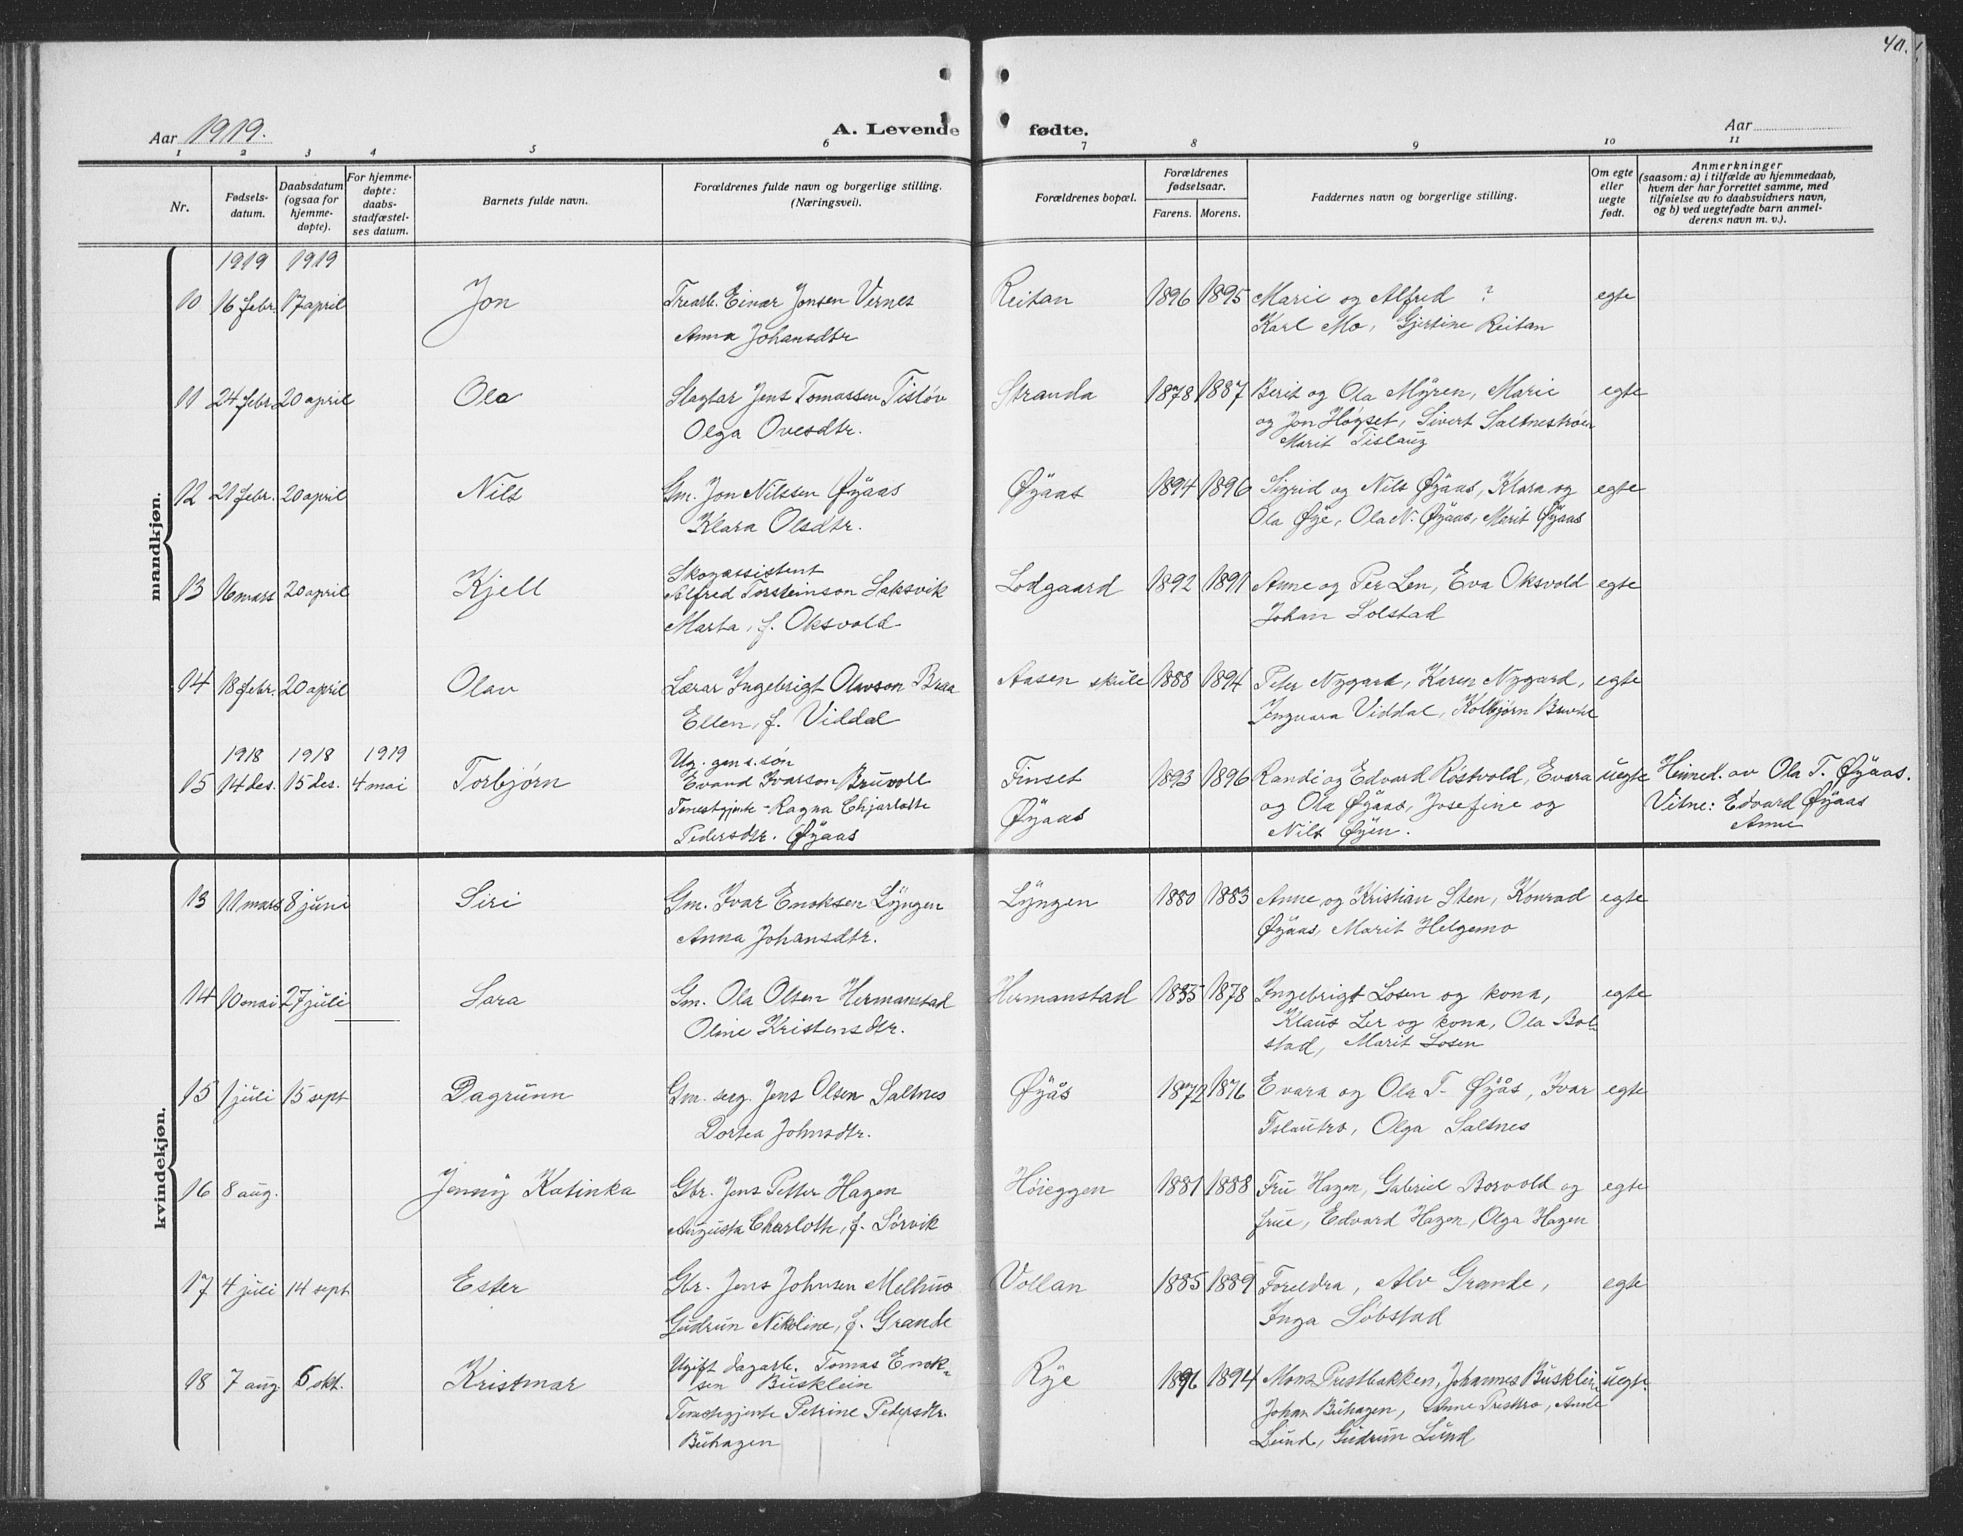 40.
Aar 1919.
A. Levende fødte.
Aar
1 2 3 4 5 6 7 8 9 10 11
Nr.
Fødsels-
datum.
Daabsdatum
(ogsaa for
hjemme-
døpte).
For hjemme-
døpte:
daabs-
stadfæstel-
ses datum.
Barnets fulde navn.
Forældrenes fulde navn og borgerlige stilling.
(Næringsvei).
Forældrenes bopæl.
Forældrenes
fødselsaar.
Farens. Morens.
Faddernes navn og borgerlige stilling.
Om egte
eller
uegte
født.
Anmerkninger
(saasom: a) i tilfælde av hjemmedaab,
hvem der har forrettet samme, med
tilføielse av to daabsvidners navn,
og b) ved uegtefødte barn anmel-
derens navn m. v.).
mandkjøn.
1919 1919
10 16 febr. 17 april Jon Trearb. Einar Jonsen Vernes Reitan 1896 1895 Marie og Alfred ? egte
Anna Johansdtr Karl Mo, Gjertine Reitan
11 24 febr. 20 april Ola Slagtar Jens Tomassen Tisløv Stranda 1878 1887 Berit og Ola Myren, Marie egte
Olga Ovesdtr. og Jon Høgset, Sivert Saltnestrøen
Marit Tislaug
12 21 febr. 20 april Nils Gm. Jon Nilssen Øyaas Øyaas 1894 1896 Sigrid og Nils Øyaas, Klara og egte
Klara Olsdtr. Ola Øye, Ola N. Øyaas, Marit Øyaas
Skogassistent
13 16 mars 20 april Kjell Alfred Torsteinson Saksvik Lodgaard 1892 1891 Anne og Per Len, Eva Oksvold egte
Marta, f. Oksvold Johan Solstad
14 18 febr. 20 april Olav Lærar Ingebrigt Olavson Braa Aasen skule 1888 1894 Peter Nygard, Karen Nygard, egte
Ellen, f. Viddal Ingvara Viddal, Kolbjørn
1918 1918 1919 Ug. gm s. søn
15 14 des. 15 des. 4 mai Torbjørn Evand Ivarson Bruvoll Finset 1893 1896 Randi og Edvard Røstvold, Evara uegte Heimed. av Ola T. Øyaas.
Tenestgjente - Ragna Chjarlotte Øyaas og Ola Øyaas, Josefine og Vitne: Edvard Øyaas
Pedersdtr. Øyaas Nils Øyen. Anne
kvindekjøn.
13 11 mars 8 juni Siri Gm. Ivar Enoksen Lyngen Lyngen 1880 1883 Anne og Kristian Sten, Konrad egte
Anna Johansdtr. Øyaas, Marit Helgemo
14 10 mai 27 juli Sara Gm. Ola Olsen Hermanstad Hermanstad 1835 1878 Ingebrigt Losen og kona, egte
Oline Kristensdtr. Klaus Ler og kona, Ola Bol-
stad, Marit Losen
15 1 juli 15 sept Dagrunn Gm. seeg. Jens Olsen Saltnes Øyås 1872 1876 Evara og Ola T. Øyås, Ivar egte
Dortea Johnsdtr. Tslautro, Olga Saltnes
16 8 aug. Jenny Katinka Gbr. Jens Petter Hagen Høieggen 1881 1888 Fru Hagen, Gabriel Borvold og egte
Augusta Charloth, f. Sørvik frue, Edvard Hagen, Olga Hagen
17 4 juli 14 sept Ester Gbr. Jens Johnsen Melhus Vollan 1885 1889 Foreldra, Alv Grande, egte
Gudrun Nikoline, f. Grande Inga Søbstad
Ugift dagarb. Tomas Enok-
18 7 aug 5 okt. Kristmar sen Busklein Rye 1896 1894 Mons Prestbakken, Johannes Busklein uegte
Tenestegjente Petrine Pedersdtr. Johan Buhagen, Anne
Buhagen Lund, Gudrun Lund